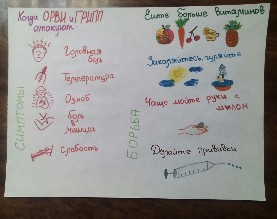 Когда ОРВИ и ГРИПП
атакуют
СИМПТОМЫ
Головная
боль
Температура
Озноб
боль
в
мышцах
Слабость
БОРЬБА
Ешьте больше витаминов
Закаляйтесь, гуляйте
Чаще мойте руки с
мылом
Делайте прививки